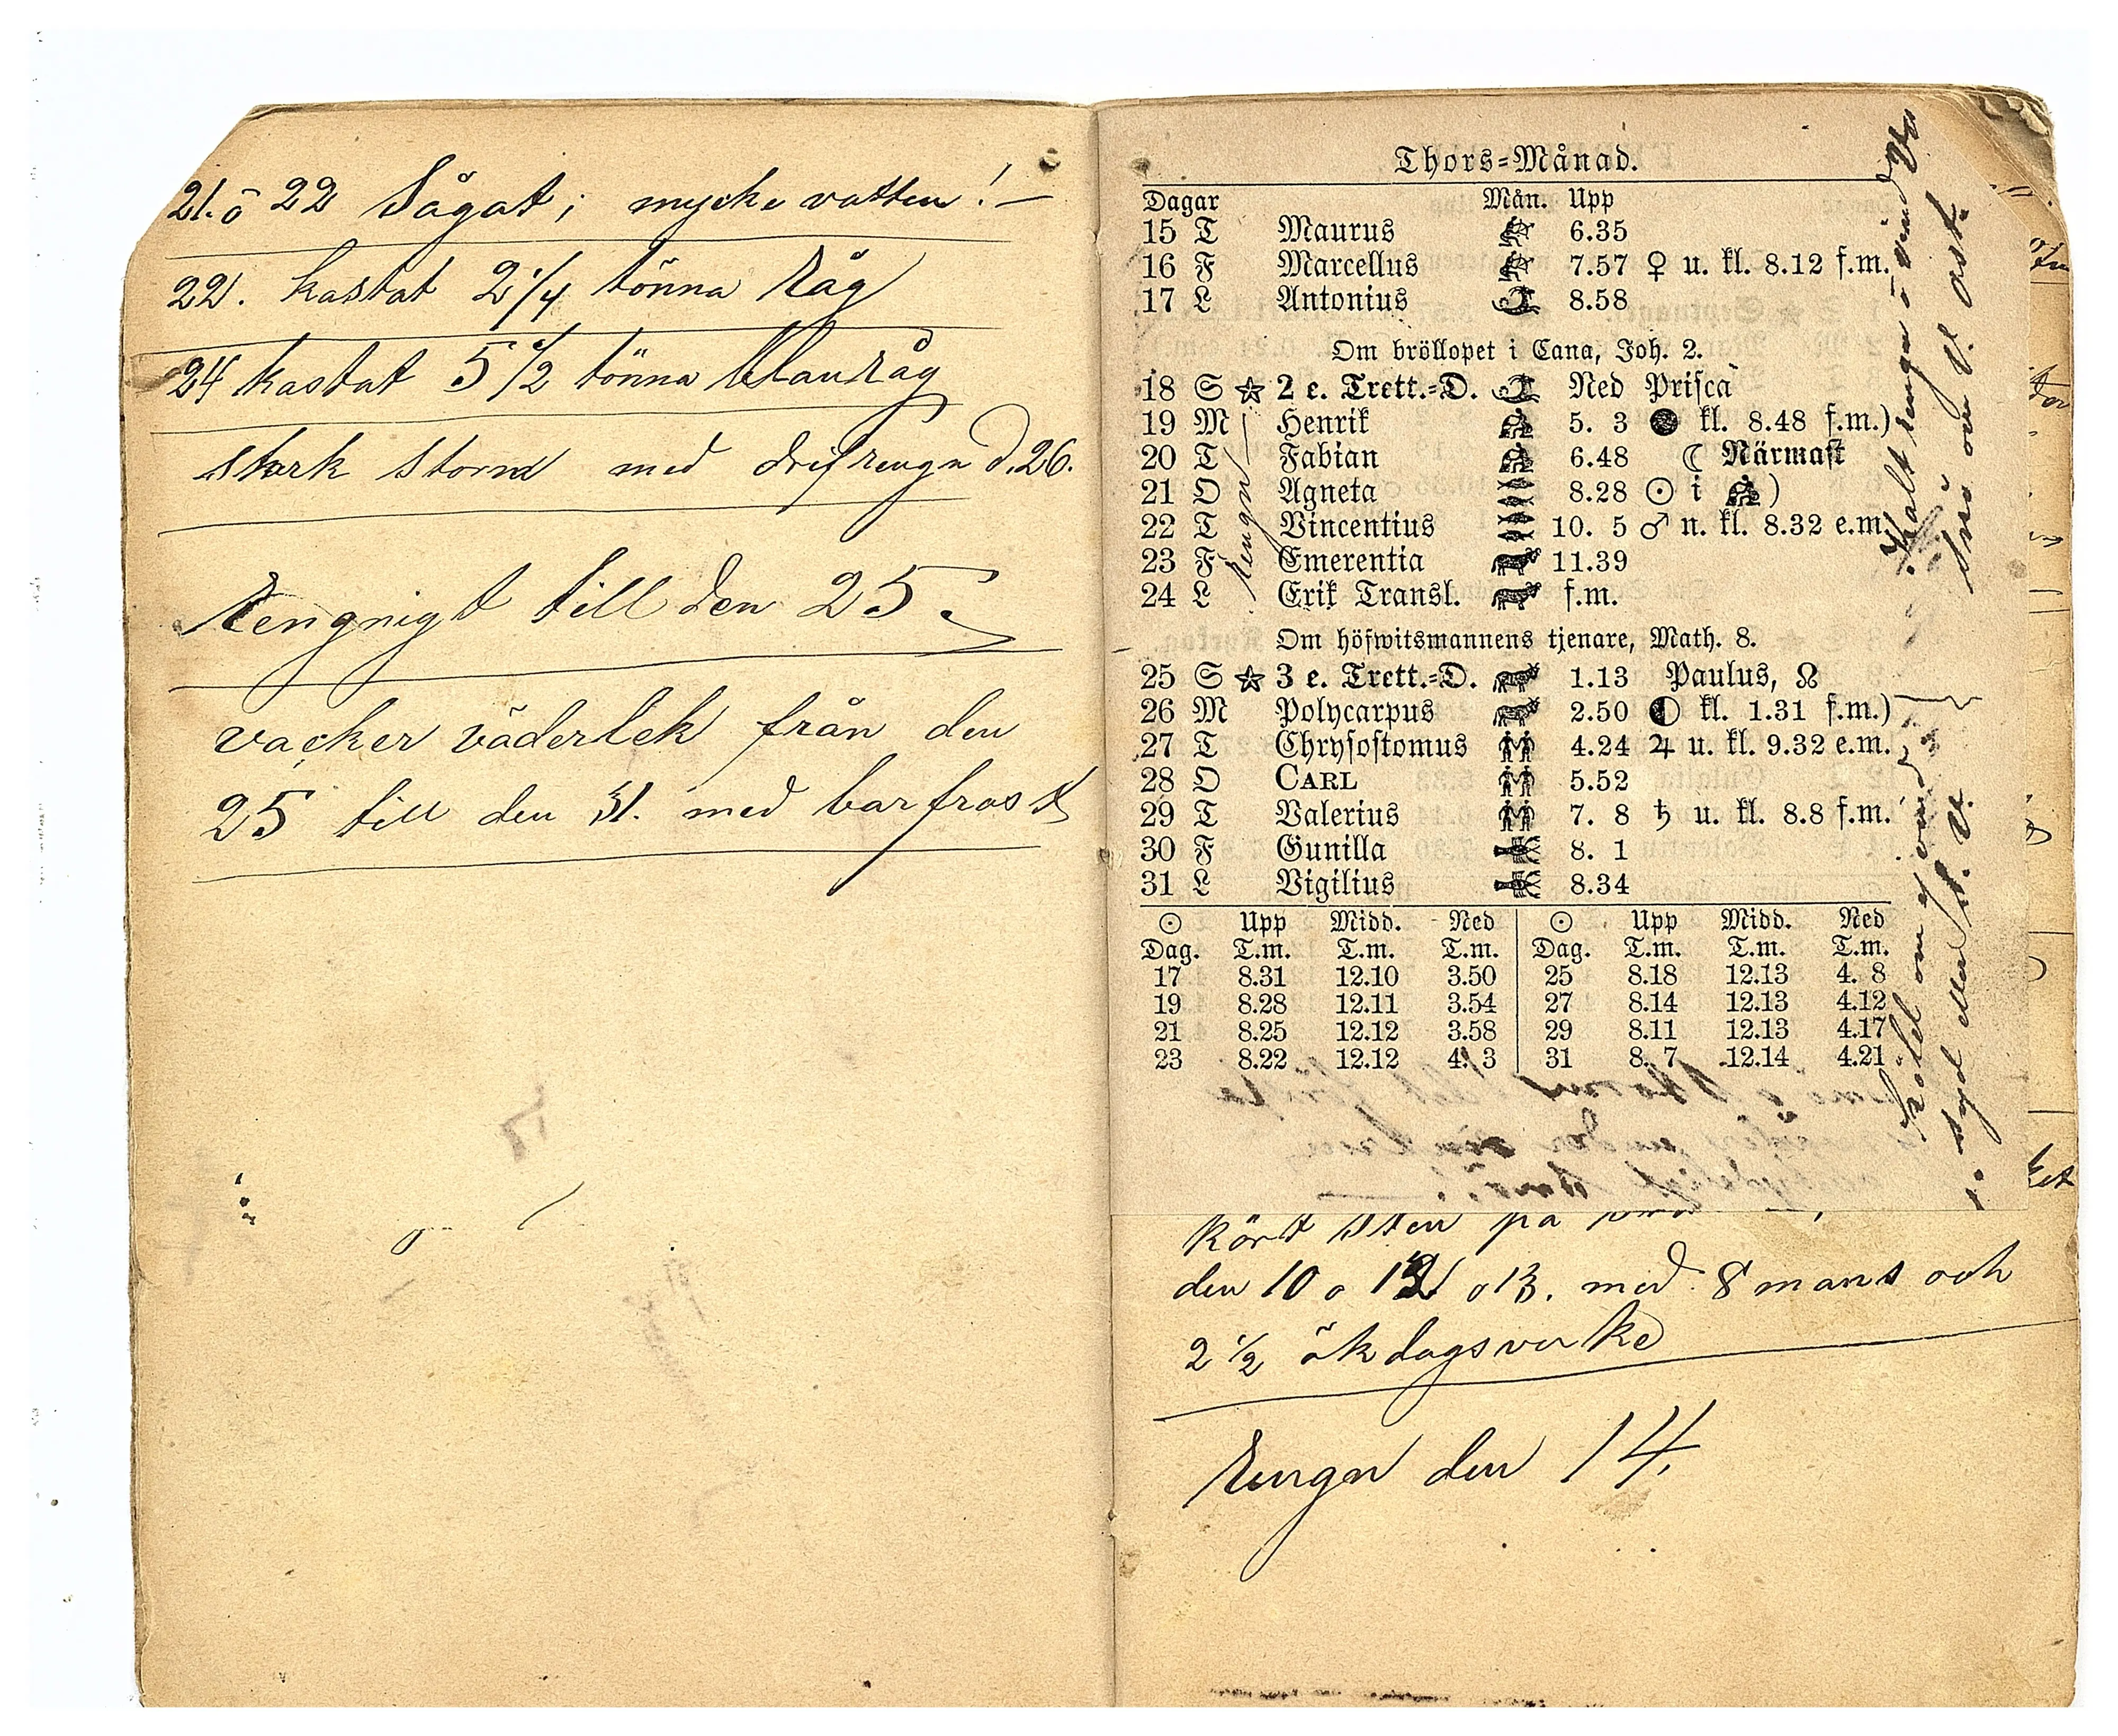 21. ö 22 Sågat; mycke vatten! —
22. kastat 2 1/4 tönna Råg
24 kastat 5 1/2 tönna Råg
stark storm med drifrengn d. 26.
Rengnigt till den 25.
vacker väderlek från den
25 till den 31. med barfrost
Thors-Månad.
Dagar Mån. Upp
15 T Maurus 6.35
16 F Marcellus 7.57 ♀ u. kl. 8.12 f.m.
17 L Antonius 8.58
Om bröllopet i Cana, Joh. 2.
18 S ☆ 2 e. Trett.=D. Ned Prisca
19 M Henrik 5. 3 ● kl. 8.48 f.m.)
20 T Fabian 6.48 ☾ Närmast
21 O Agneta 8.28 ☉ i ♒)
22 T Vincentius 10. 5 ♂ n. kl. 8.32 e.m.
23 F Emerentia 11.39
24 L Erik Transl. f.m.
Rengn
Om höfwitsmannens tjenare, Math. 8.
25 S ☆ 3 e. Trett.=D. 1.13 Paulus, ☊
26 M Polycarpus 2.50 ◐ kl. 1.31 f.m.)
27 T Chrysostomus 4.24 ♃ u. kl. 9.32 e.m.
28 O CARL 5.52
29 T Valerius 7. 8 ♄ u. kl. 8.8 f.m.
30 F Gunilla 8. 1
31 L Vigilius 8.34
☉ Upp Midd. Ned ☉ Upp Midd. Ned
Dag. T.m. T.m. T.m. Dag. T.m. T.m. T.m.
17 8.31 12.10 3.50 25 8.18 12.13 4. 8
19 8.28 12.11 3.54 27 8.14 12.13 4.12
21 8.25 12.12 3.58 29 8.11 12.13 4.17
23 8.22 12.12 4. 3 31 8. 7 12.14 4.21
Kallt rengn ö vind
snö om V. ost.
Köld om vind
syd eller V.
kört sten på
den 10 o 12 o 13. med 8 mans och
2 1/2 ökdagsverke
Rengn den 14.